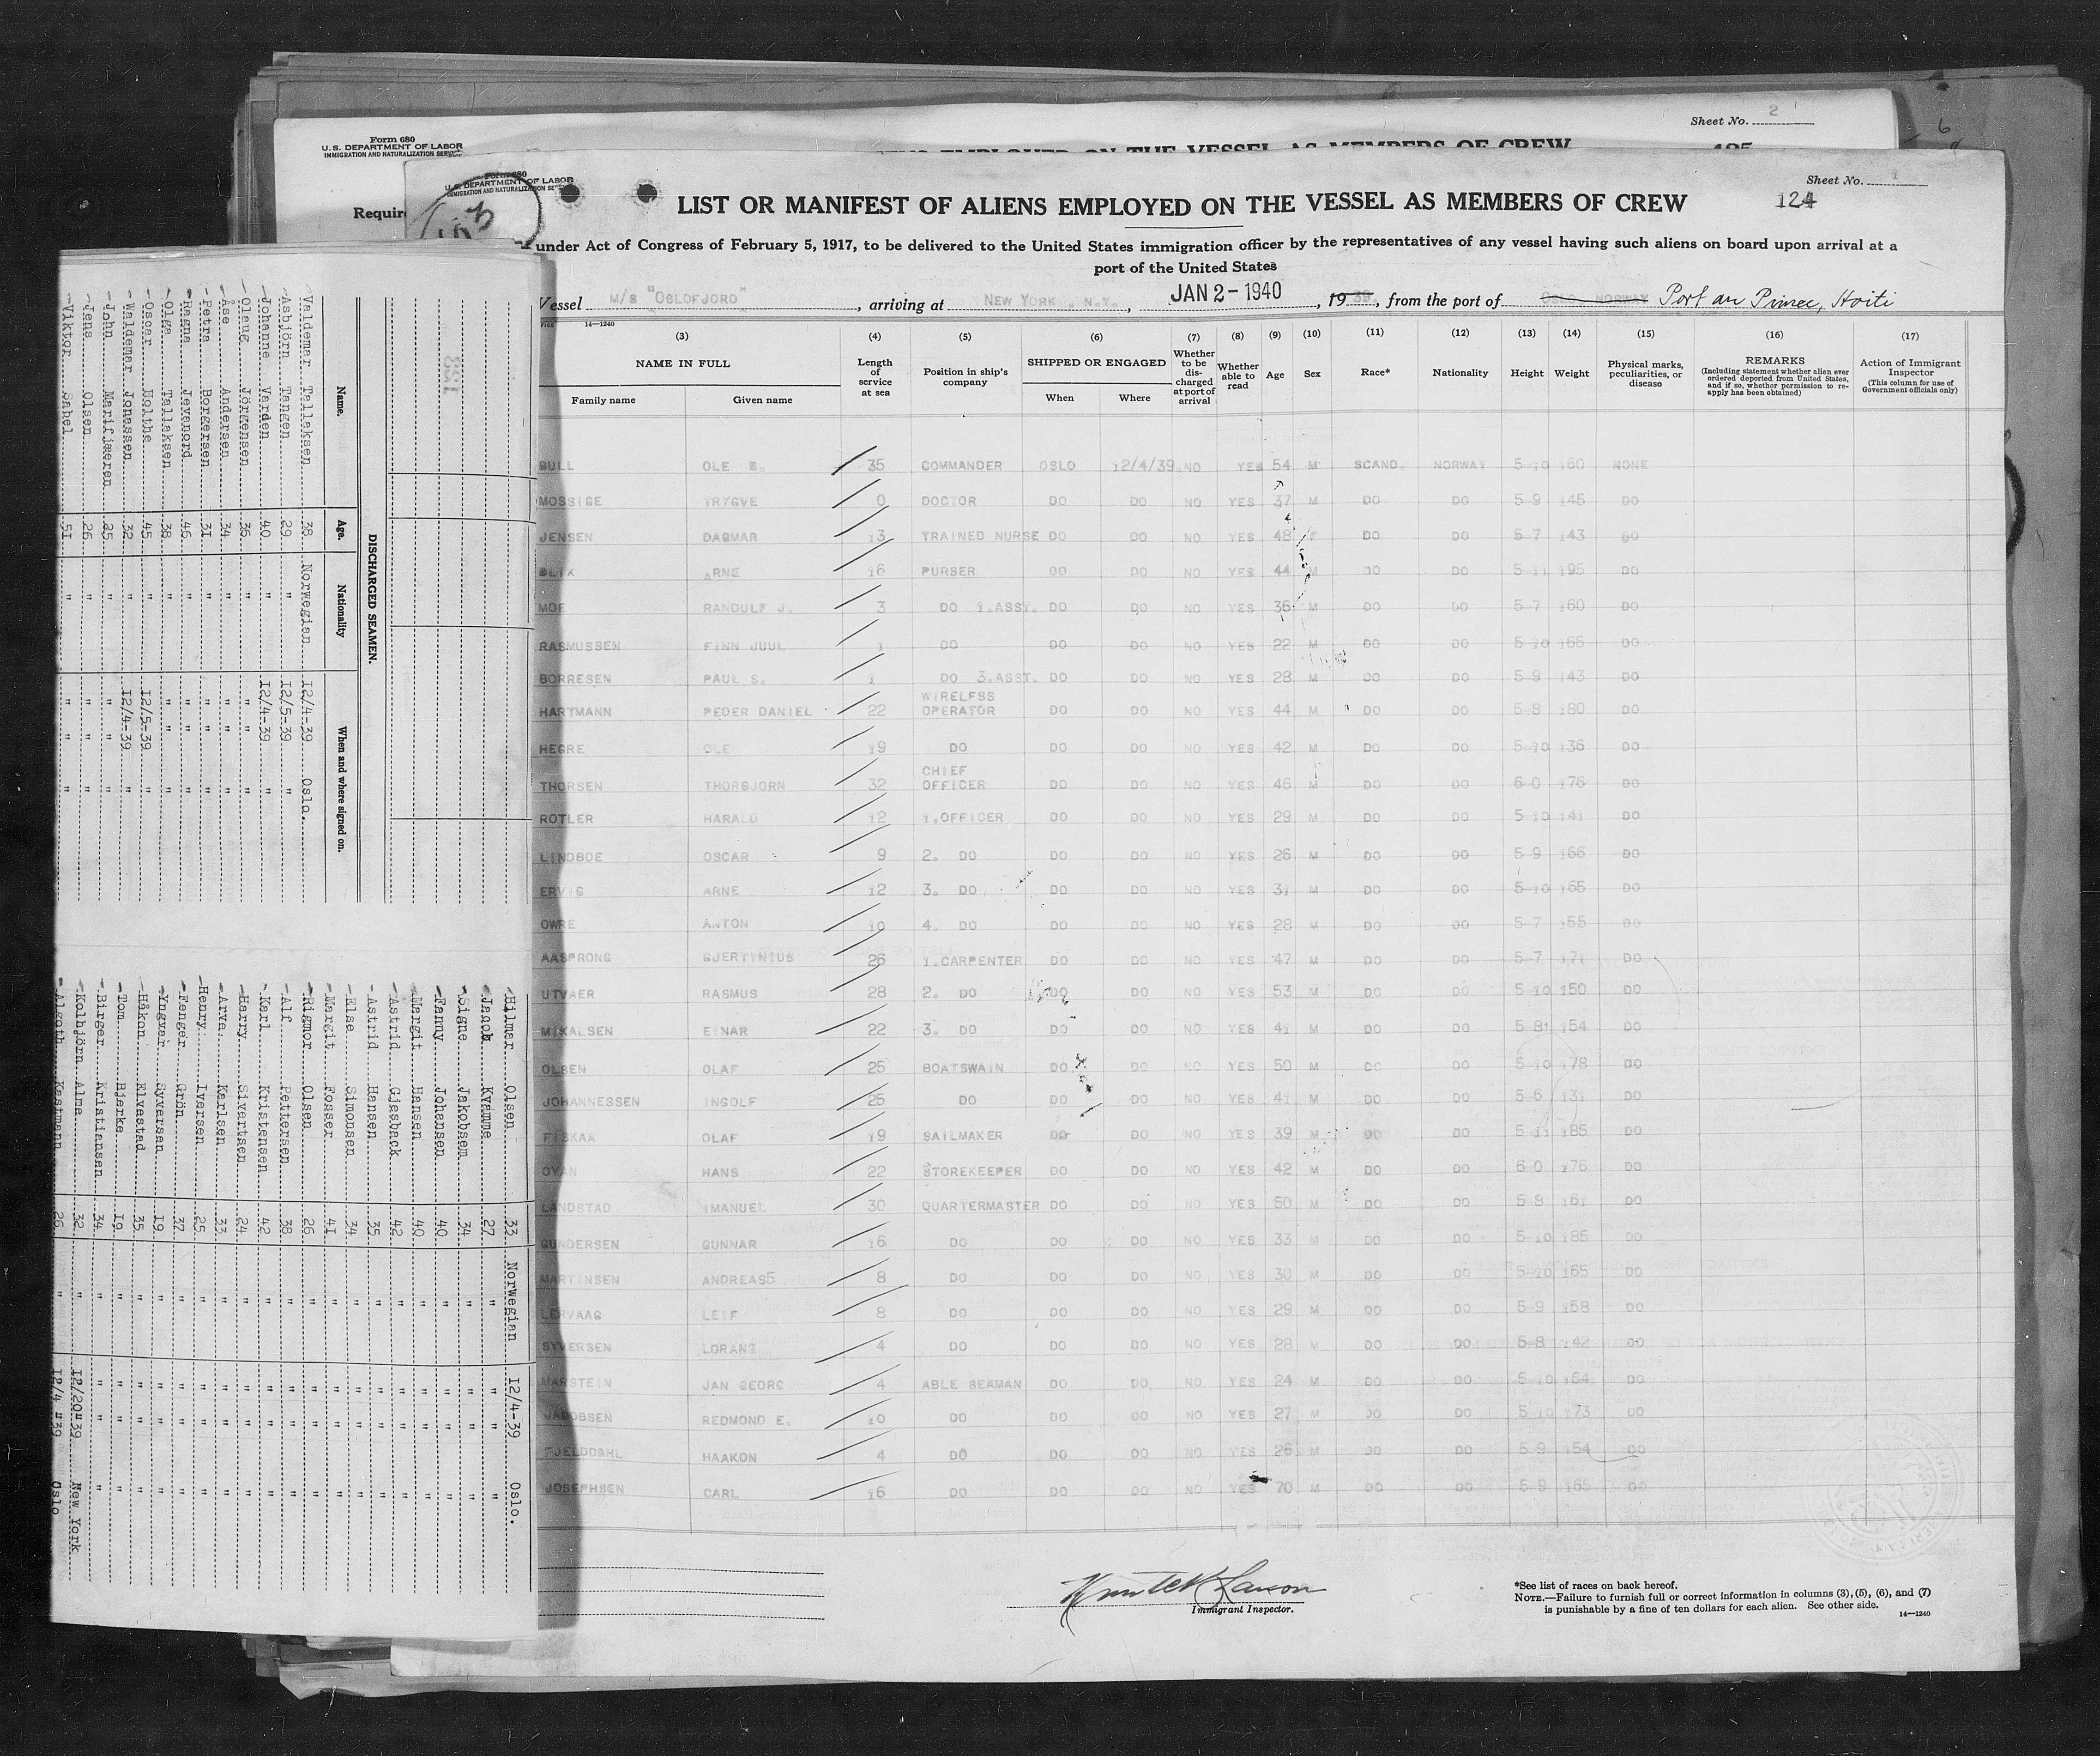 Sheet No. 2
Form 680
U. S. DEPARTMENT OF LABOR
IMMIGRATION AND NATURALIZATION SERVICE
Sheet No. 1
Form 680
U. S. DEPARTMENT OF LABOR
LIST OR MANIFEST OF ALIENS EMPLOYED ON THE VESSEL AS MEMBERS OF CREW
124
under Act of Congress of February 5, 1917, to be delivered to the United States immigration officer by the representatives of any vessel having such aliens on board upon arrival at a
port of the United States
Vessel M/S "OSLOFJORD", arriving at NEW YORK, N.Y., JAN 2 - 1940, 1939, from the port of OSLO NORWAY Port au Prince, Haiti
14—1240
(3) (4) (5) (6) (7) (8) (9) (10) (11) (12) (13) (14) (15) (16) (17)
NAME IN FULL
Family name Given name
Length of service at sea
Position in ship's company
SHIPPED OR ENGAGED
When Where
Whether to be discharged at port of arrival
Whether able to read
Age Sex Race* Nationality Height Weight
Physical marks, peculiarities, or disease
REMARKS
(Including statement whether alien ever ordered deported from United States, and if so, whether permission to reapply has been obtained)
Action of Immigrant Inspector
(This column for use of Government officials only)
BULL OLE B. 35 COMMANDER OSLO 12/4/39 NO YES 54 M SCAND. NORWAY 5 10 160 NONE
MOSSIGE TRYGVE 0 DOCTOR DO DO NO YES 37 M DO DO 5 9 145 DO
JENSEN DAGMAR 13 TRAINED NURSE DO DO NO YES 48 F DO DO 5 7 143 DO
BLIX ARNE 16 PURSER DO DO NO YES 44 M DO DO 5 11 195 DO
MOE RANDULF J. 3 DO 1.ASST. DO DO NO YES 36 M DO DO 5 7 160 DO
RASMUSSEN FINN JUUL 1 DO DO DO NO YES 22 M DO DO 5 10 165 DO
BORRESEN PAUL S. 1 DO 3.ASST. DO DO NO YES 28 M DO DO 5 9 143 DO
HARTMANN PEDER DANIEL 22 WIRELESS OPERATOR DO DO NO YES 44 M DO DO 5 8 180 DO
HEGRE OLE 19 DO DO DO NO YES 42 M DO DO 5 10 136 DO
THORSEN THORBJORN 32 CHIEF OFFICER DO DO NO YES 46 M DO DO 6 0 176 DO
ROTLER HARALD 12 1.OFFICER DO DO NO YES 29 M DO DO 5 10 141 DO
LINDBOE OSCAR 9 2. DO DO DO NO YES 26 M DO DO 5 9 166 DO
ERVIG ARNE 12 3. DO DO DO NO YES 31 M DO DO 5 10 165 DO
OWRE ANTON 10 4. DO DO DO NO YES 28 M DO DO 5 7 155 DO
AASPRONG GJERTINIUS 26 1.CARPENTER DO DO NO YES 47 M DO DO 5 7 171 DO
UTVAER RASMUS 28 2. DO DO DO NO YES 53 M DO DO 5 10 150 DO
MIKALSEN EINAR 22 3. DO DO DO NO YES 41 M DO DO 5 8 154 DO
OLSEN OLAF 25 BOATSWAIN DO DO NO YES 50 M DO DO 5 10 178 DO
JOHANNESSEN INGOLF 25 DO DO DO NO YES 41 M DO DO 5 6 131 DO
FISKAA OLAF 19 SAILMAKER DO DO NO YES 39 M DO DO 5 11 185 DO
OYAN HANS 22 STOREKEEPER DO DO NO YES 42 M DO DO 6 0 176 DO
LANDSTAD IMANUEL 30 QUARTERMASTER DO DO NO YES 50 M DO DO 5 8 161 DO
GUNDERSEN GUNNAR 16 DO DO DO NO YES 33 M DO DO 5 10 185 DO
MARTINSEN ANDREAS 8 DO DO DO NO YES 30 M DO DO 5 10 165 DO
LERVAAG LEIF 8 DO DO DO NO YES 29 M DO DO 5 9 158 DO
SYVERSEN LORANS 4 DO DO DO NO YES 28 M DO DO 5 8 142 DO
MARSTEIN JAN GEORG 4 ABLE SEAMAN DO DO NO YES 24 M DO DO 5 10 164 DO
JACOBSEN REDMOND E. 10 DO DO DO NO YES 27 M DO DO 5 10 173 DO
FJELDDAHL HAAKON 4 DO DO DO NO YES 26 M DO DO 5 9 154 DO
JOSEPHSEN CARL 16 DO DO DO NO YES 70 M DO DO 5 9 165 DO
Immigrant Inspector.
*See list of races on back hereof.
NOTE.—Failure to furnish full or correct information in columns (3), (5), (6), and (7)
is punishable by a fine of ten dollars for each alien. See other side.
14—1240
DISCHARGED SEAMEN.
Name. Age. Nationality When and where signed on.
Valdemar Tallaksen 38 Norwegian 12/4-39 Oslo.
Asbjörn Tangen 29 " 12/5-39 "
Johanne Varden 40 " 12/4-39 "
Olaug Jörgensen 36 " " "
Åse Andersen 34 " " "
Petra Borgersen 31 " " "
Ragna Jevanord 46 " " "
Olga Tallaksen 38 " " "
Oscar Holthe 45 " 12/5-39 "
Waldemar Jonassen 32 " 12/4-39 "
John Marifjæren 25 " " "
Jens Olsen 26 " " "
Viktor Sahel 51 " " "
Hilmar Olsen 33 Norwegian 12/4-39 Oslo.
Jacob Kvamme 27 " " "
Signe Jakobsen 34 " " "
Fanny Johansen 40 " " "
Margit Hansen 40 " " "
Astrid Gjesback 42 " " "
Astrid Hansen 35 " " "
Else Simonsen 34 " " "
Margit Rosser 41 " " "
Rigmor Olsen 26 " " "
Alf Pettersen 38 " " "
Karl Kristensen 42 " " "
Harry Sivertsen 24 " " "
Arve Karlsen 33 " " "
Henry Iversen 25 " " "
Fenger Grön 37 " " "
Yngvar Syversen 19 " " "
Håkon Elvestad 35 " " "
Tom Bjerke 19 " " "
Birger Kristiansen 34 " " "
Kolbjörn Alme 32 " 12/20-39 New York
Algoth Kestmann 26 " 12/4-39 Oslo